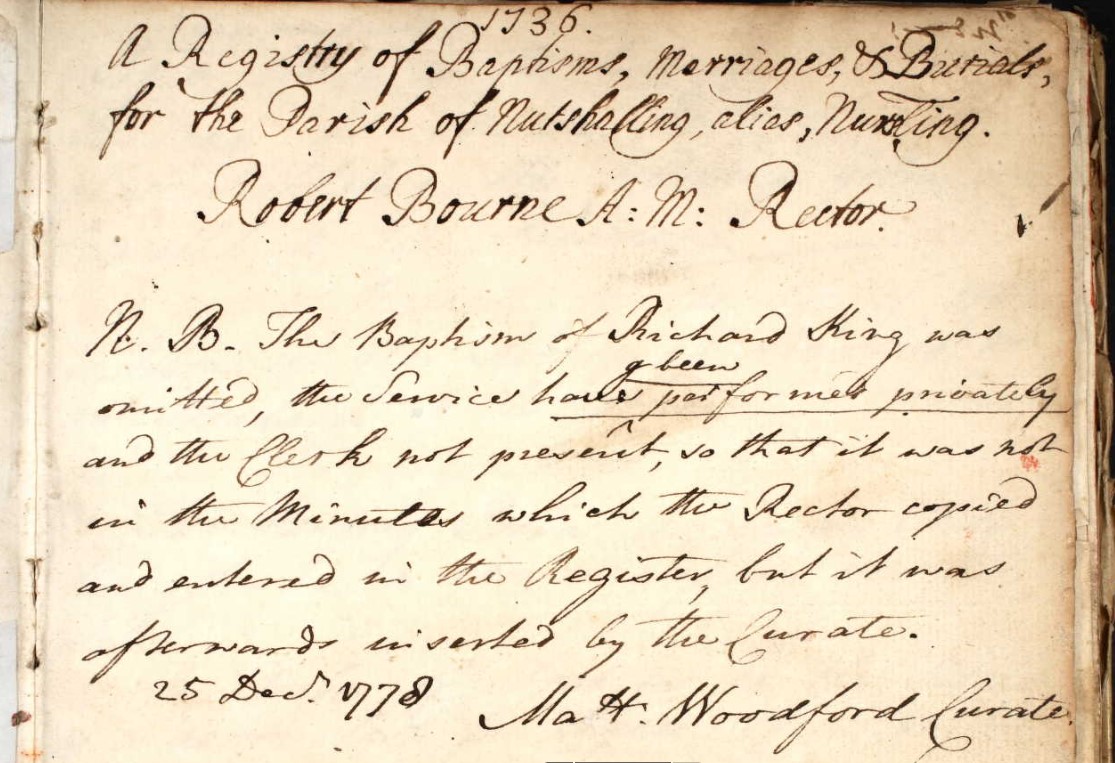 1736.
A Registry of Baptisms, Marriages, & Burials,
for the Parish of Nutshalling, alias, Nursling.
Robert Bourne A: M: Rector.
N. B. The Baptism of Richard King was
g been
omitted, the Service have performed privately
and the Clerk not present, so that it was not
in the Minutes which the Rector copied
and entered in the Register, but it was
afterwards inserted by the Curate.
25 Decr. 1778
Matt: Woodford Curate.